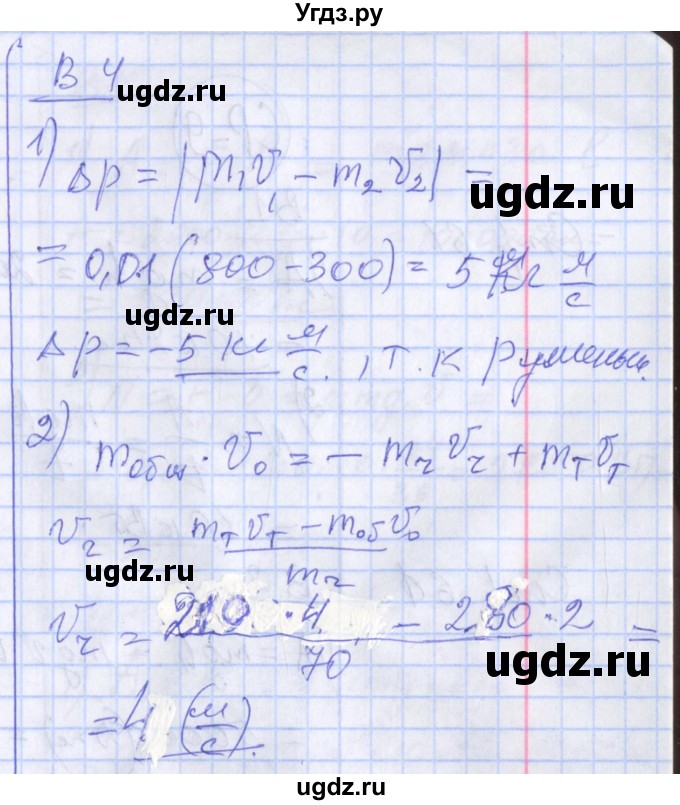 Угдз.ру
В 4
ugdz.ru
1) Δp = |m₁v₁ - m₂v₂| =
ugdz.ru
= 0,01 (800-300) = 5 кг м/с
ugdz.ru
Δp = -5 кг м/с., т.к p уменьш.
ugdz.ru
2) mобщ · v₀ = - mч vч + mт vт
ugdz.ru
vч = (mт vт - mоб v₀) / mч
ugdz.ru
vч = (210 · 4 - 280 · 2) / 70 =
ugdz.ru
= 4 (м/с).
ugdz.ru